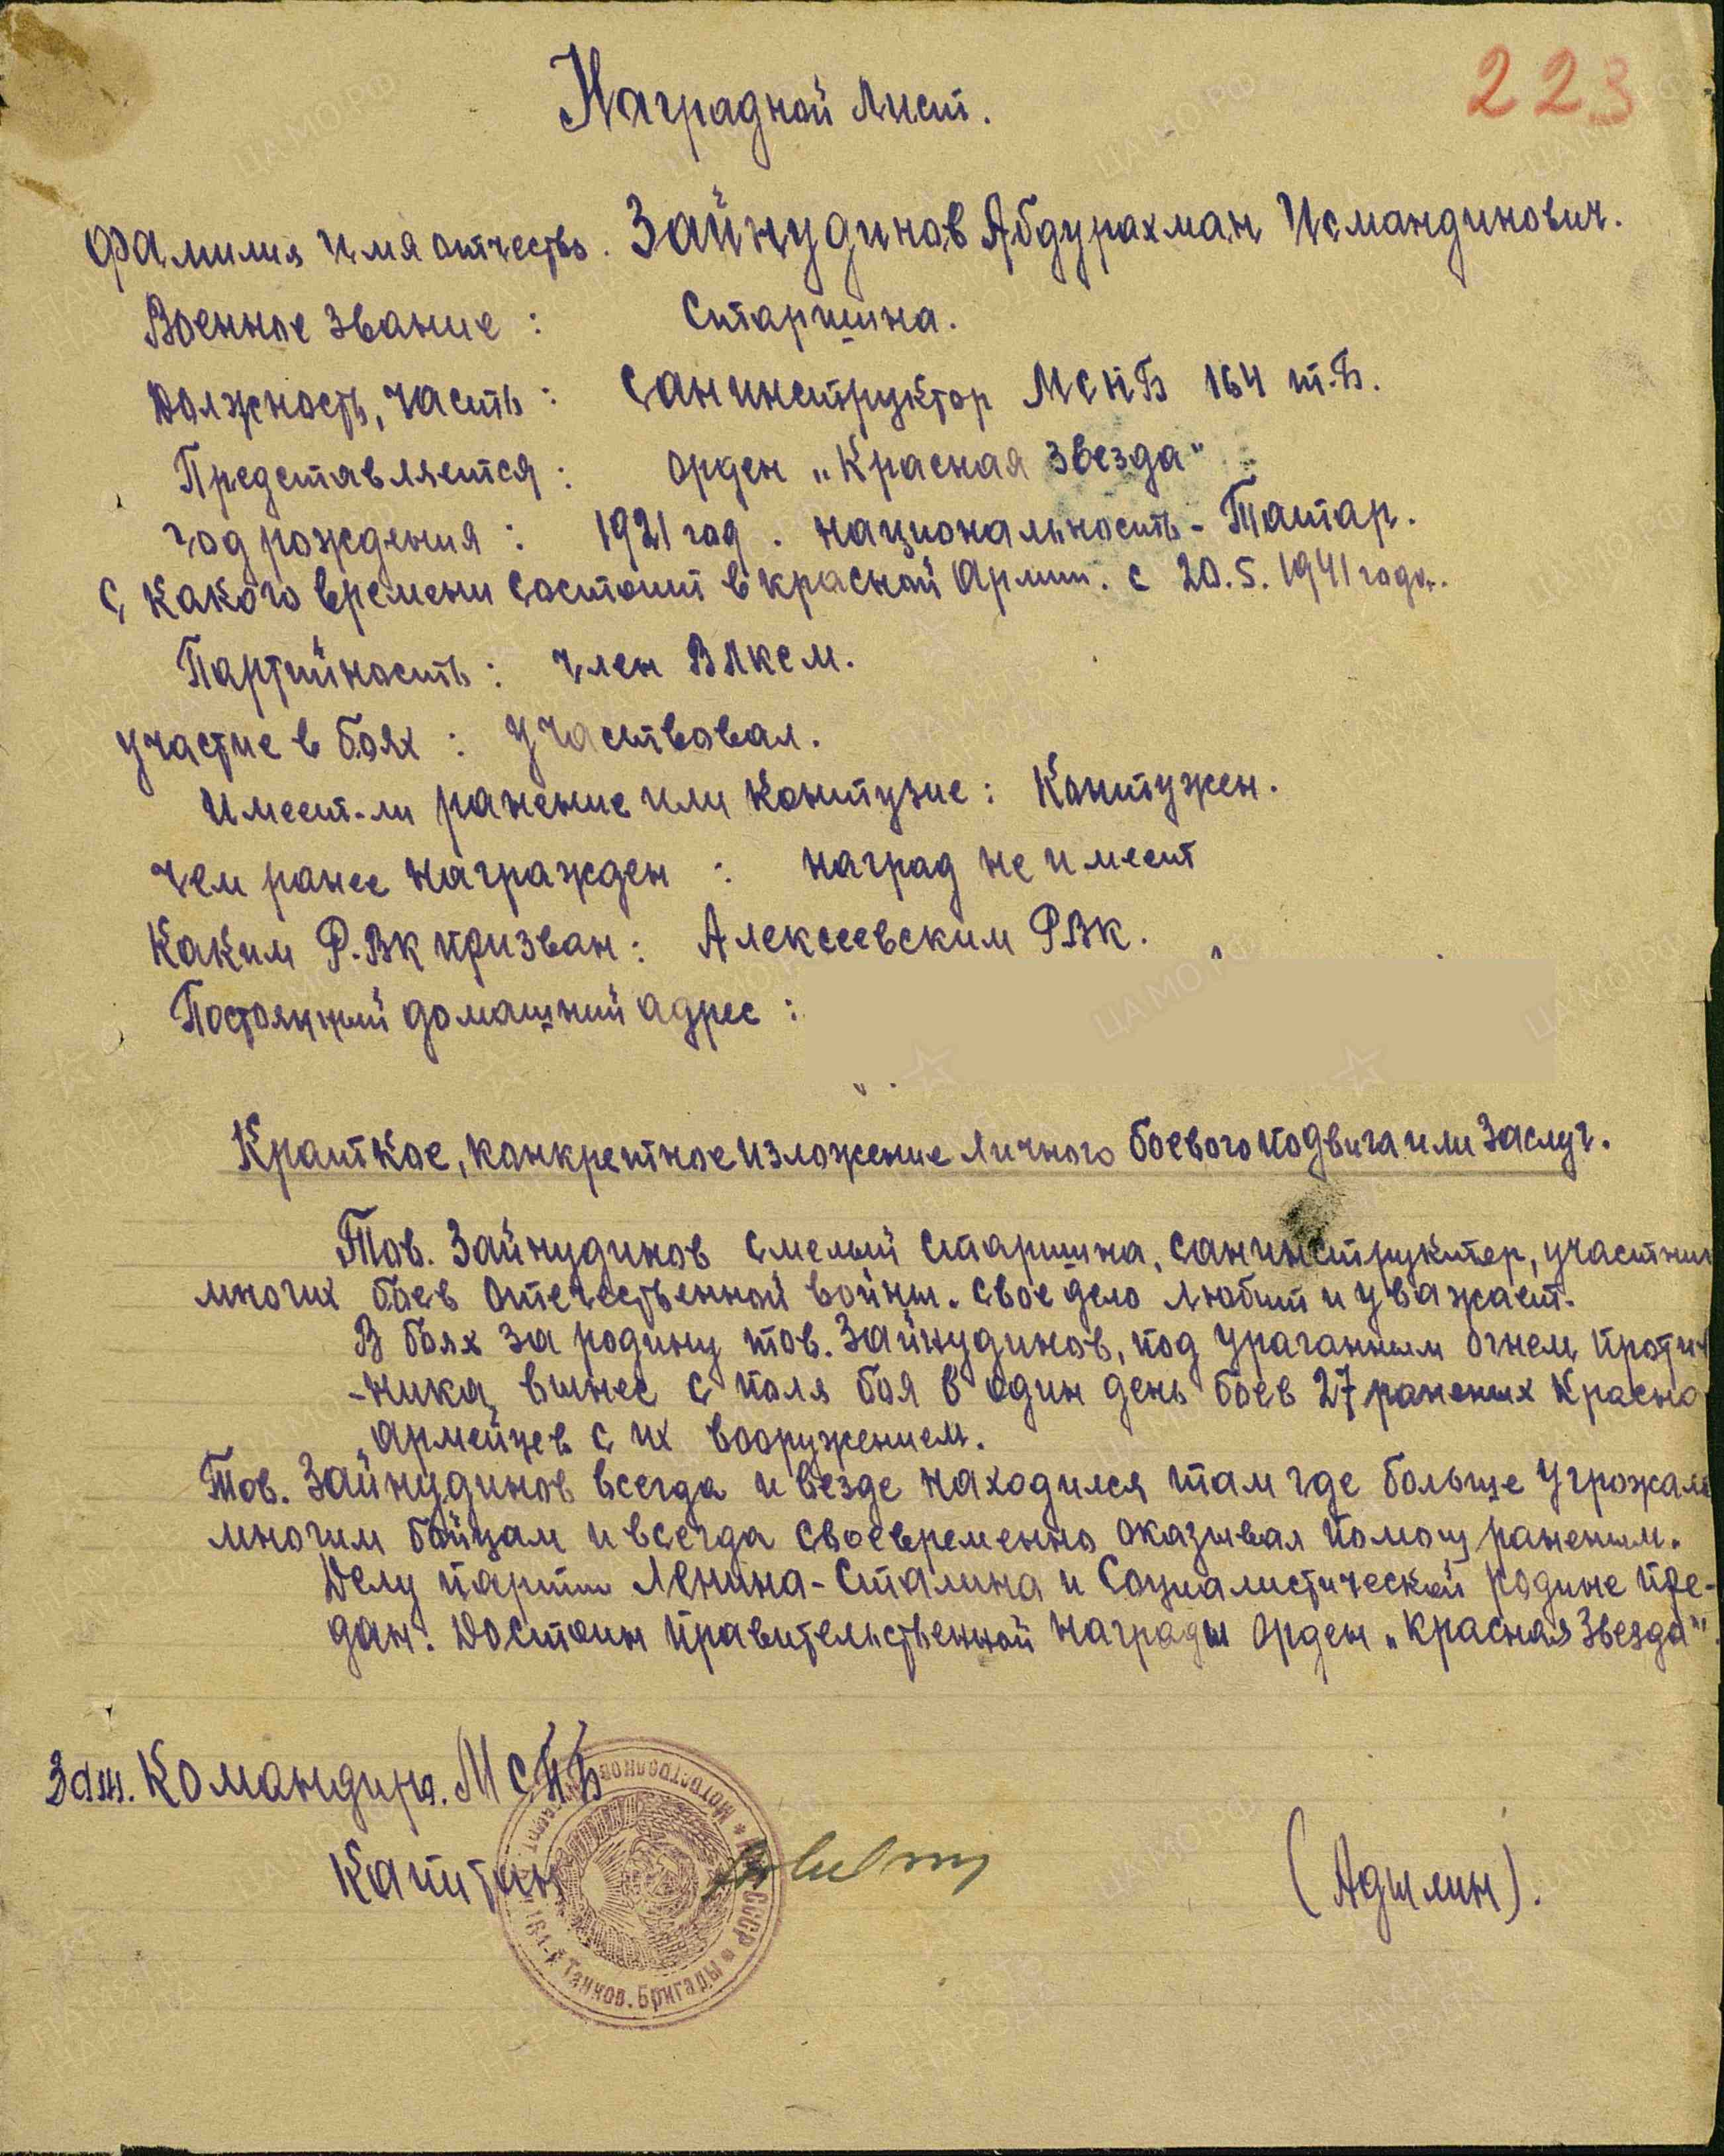 223
Наградной лист.
Фамилия имя отчество. Зайнудинов Абдурахман Исмандинович.
Военное звание : Старшина.
Должность, часть : Санинструктор МСПБ 164 т.Б.
Представляется : орден „Красная звезда“
Год рождения : 1921 год. национальность - Татар.
С какого времени состоит в красной Армии. с 20.5.1941 года.
Партийность : член ВЛКСМ.
Участие в боях : участвовал.
Имеет-ли ранение или контузие : Контужен.
Чем ранее награжден : наград не имеет
Каким Р.ВК призван : Алексеевским РВК.
Постоянный домашний адрес :
Краткое, конкретное изложение личного боевого подвига или заслуг.
Тов. Зайнудинов смелый старшина, санинструктер, участник
многих боев отечественной войны. Свое дело любит и уважает.
В боях за родину тов. Зайнудинов, под ураганным огнем против
-ника, вынес с поля боя в один день боев 27 раненых красно
армейцев с их вооружением.
Тов. Зайнудинов всегда и везде находился там где больше угрожало
многим бойцам и всегда своевременно оказывал помощ раненым.
Делу партии Ленина-Сталина и Социалистической родине пре-
дан. Достоин правительственной награды орден „Красная Звезда“.
Зам. Командира. МСПБ
Капитан
(Адилин).
СССР
164-й Танков. Бригады